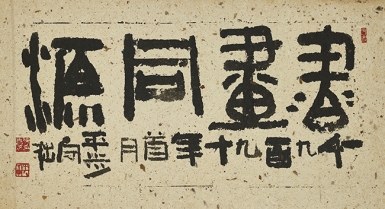 書畫同源
千九百九十年首月